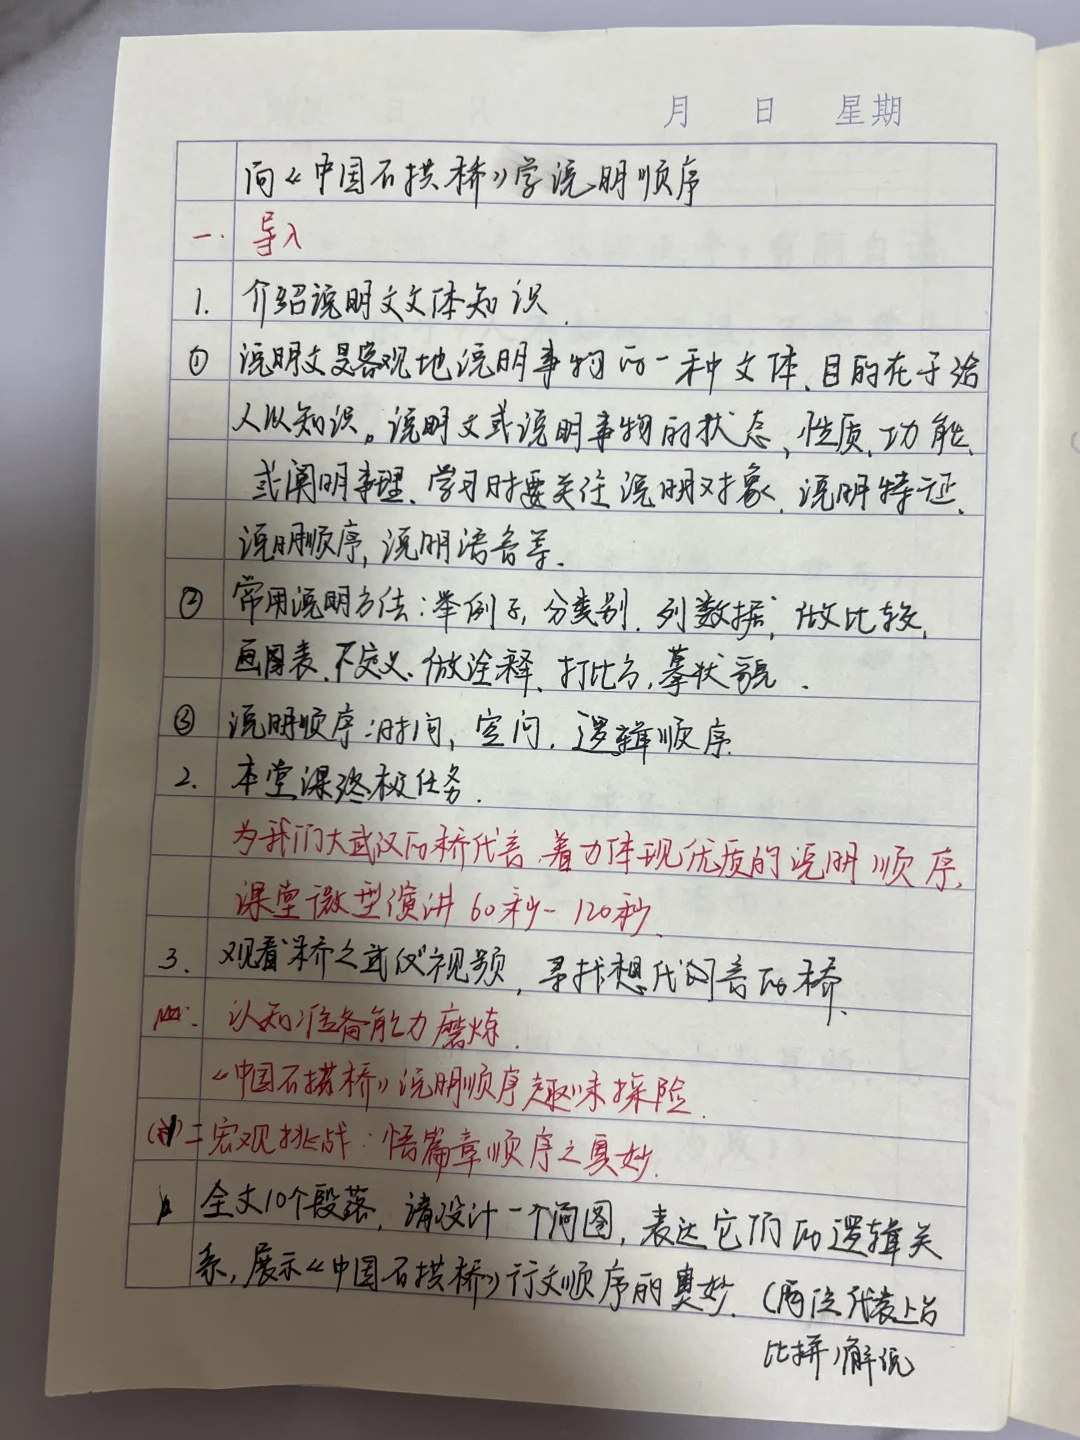 月 日 星期
向《中国石拱桥》学说明顺序
一. 导入
1. 介绍说明文文体知识.
① 说明文是客观地说明事物的一种文体、目的在于给
人以知识。说明文或说明事物的状态,性质、功能、
或阐明事理、学习时要关注说明对象、说明特征、
说明顺序,说明语言等.
② 常用说明方法:举例子,分类别、列数据,做比较,
画图表、下定义、做诠释、打比方,摹状貌.
③ 说明顺序:时间,空间、逻辑顺序.
2. 本堂课终极任务.
为我们大武汉的桥代言、着力体现优质的说明顺序,
课堂微型演讲60秒-120秒.
3. 观看“桥之武汉”视频,寻找想代言的桥.
认知准备能力磨炼.
《中国石拱桥》说明顺序趣味探险.
二 宏观挑战:悟篇章顺序之奥妙.
全文10个段落,请设计一个简图,表达它们的逻辑关
系,展示《中国石拱桥》行文顺序的奥妙.(两位代表上台
比拼)解说